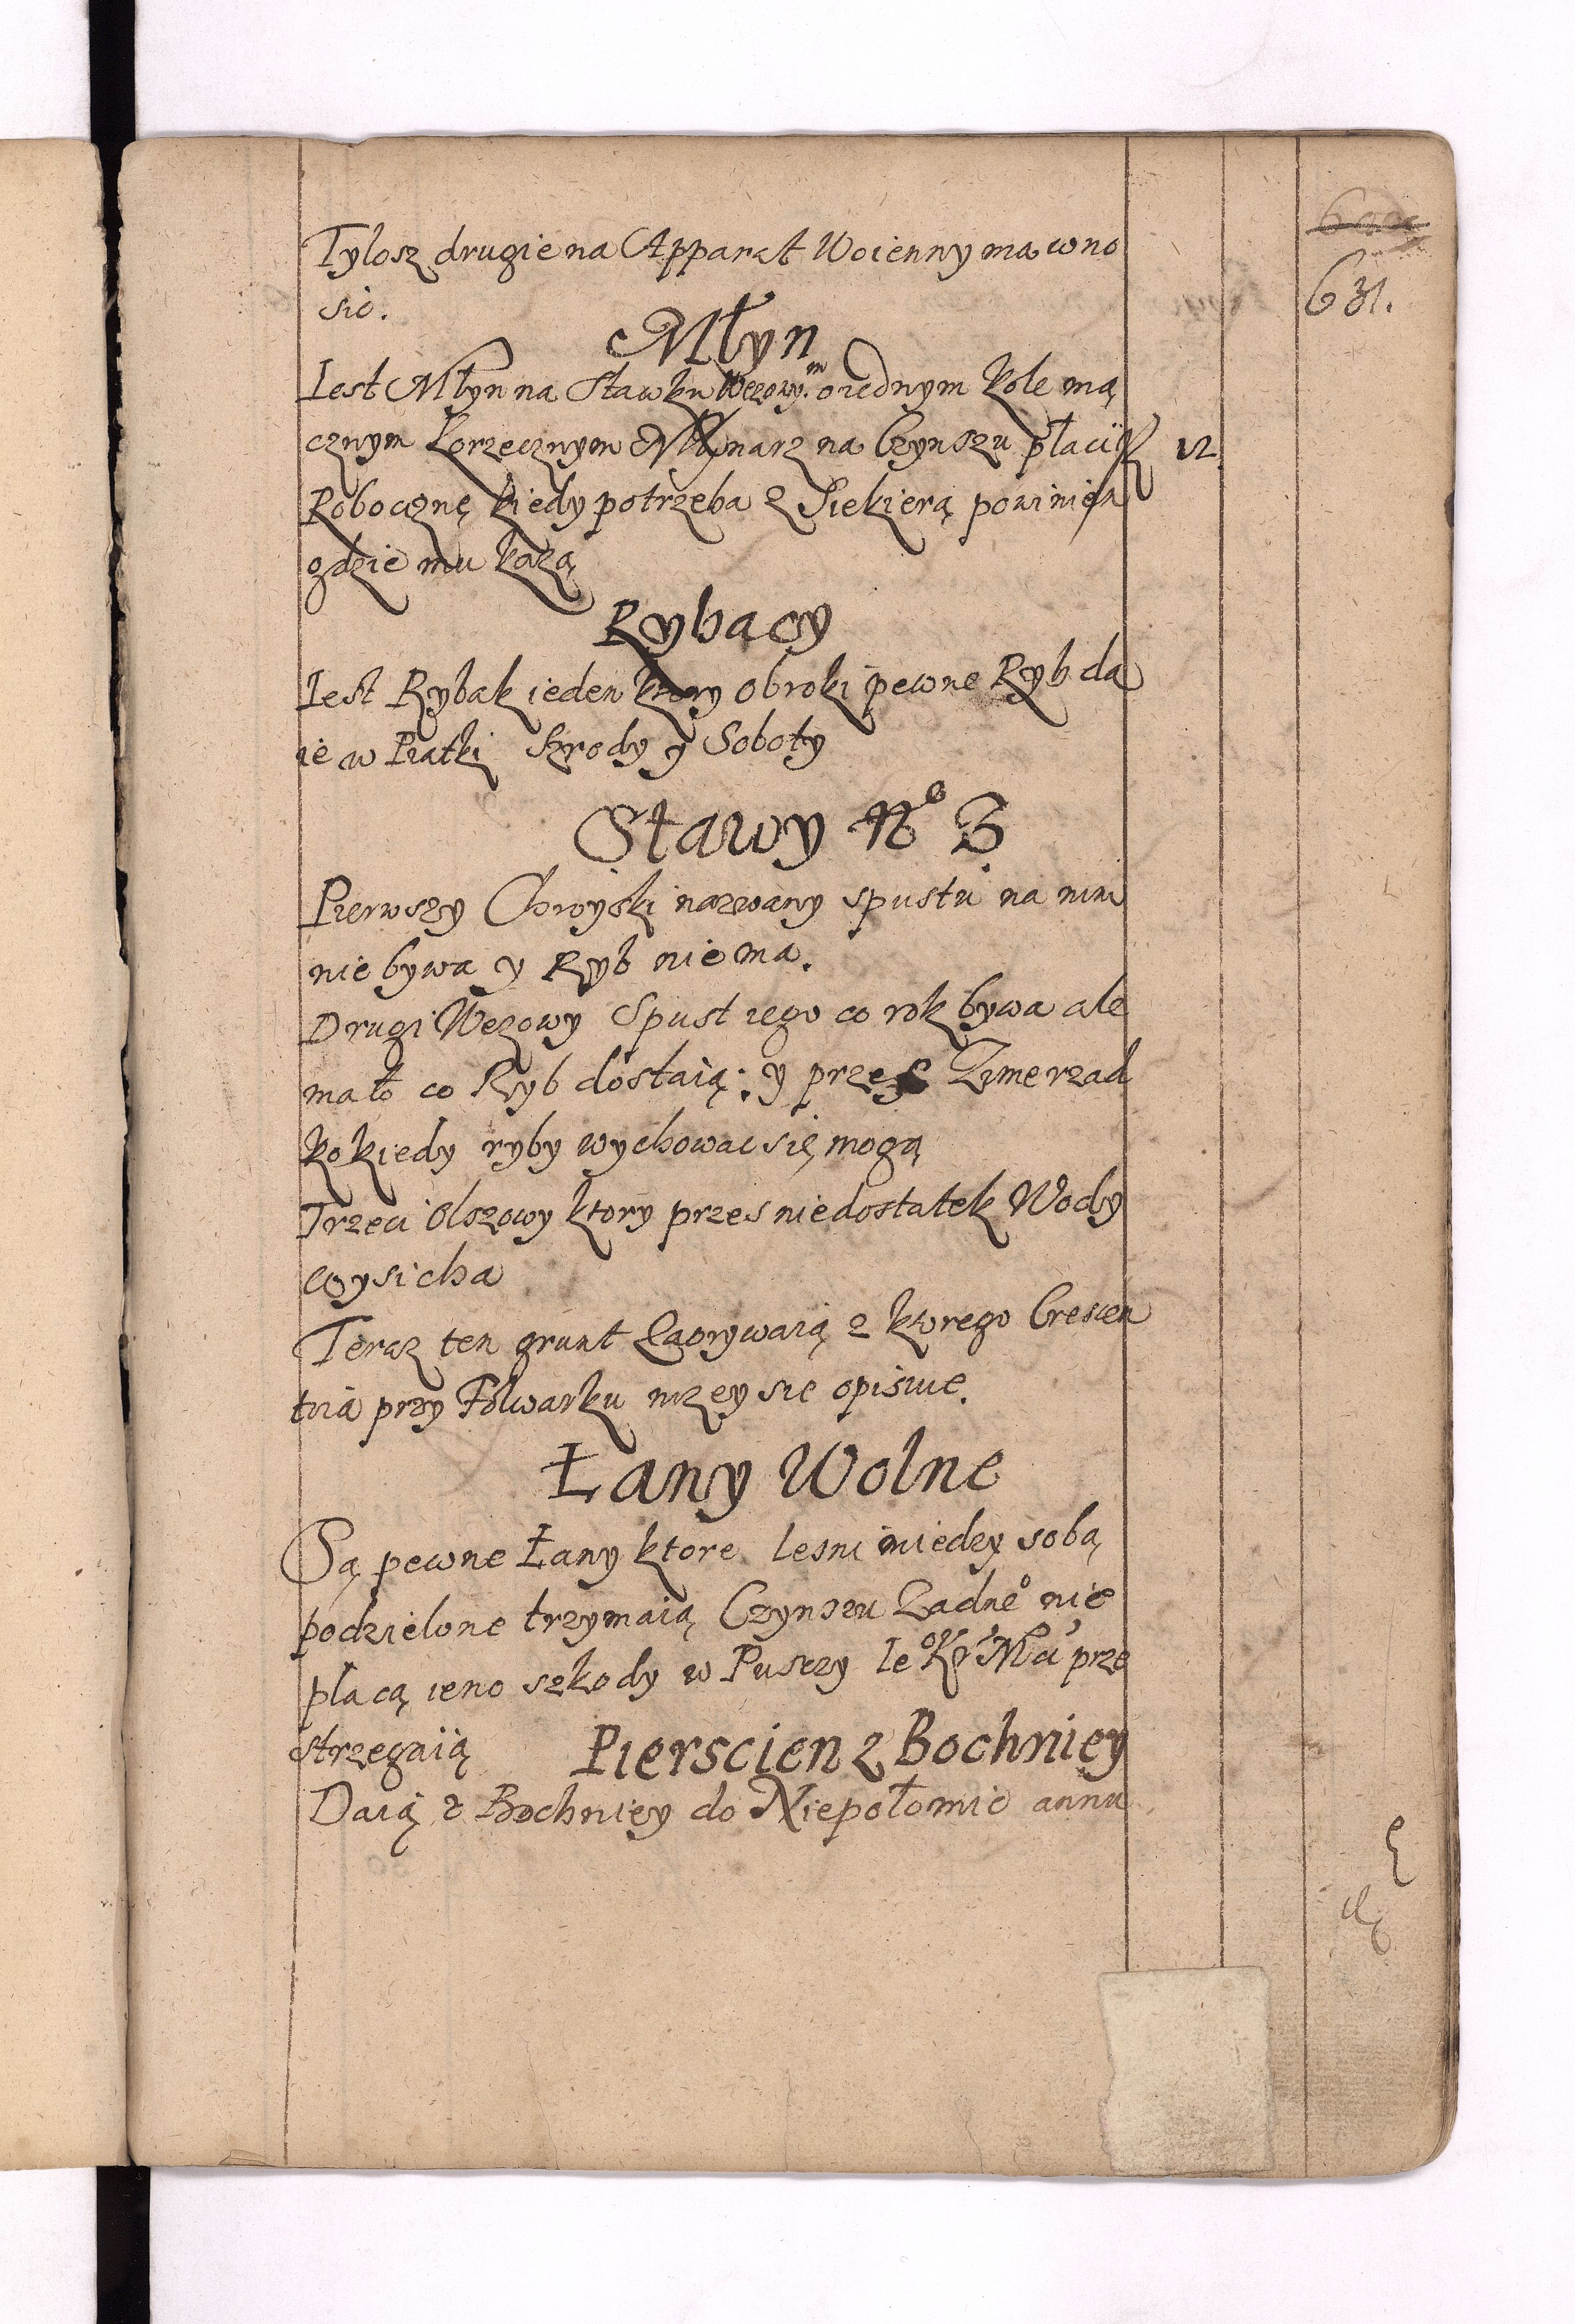 631.
Tylosz drugie na Apparat Woienny ma wno
sic.
Młyn
Iest Młyn na Stawku Wezowym o iednym kole mą
cznym korzecznym Młynarz na Czynszu płaci 12
Roboczne kiedy potrzeba z Siekierą powinien
gdzie mu kazą
Rybacy
Iest Rybak ieden ktory obroki pewne Ryb da
ie w Piatki Srody y Soboty
Stawy No 3
Pierwszy nazwany spustu na nim
nie bywa y Ryb nie ma.
Drugi Wezowy Spust iego co rok bywa ale
mało co Ryb dostaią: y przes Zime rzad
ko kiedy ryby wychowac się mogą
Trzeci Olszowy ktory przes niedostatek Wody
wysicha
Teraz ten grunt Zaorywaią z ktorego Crescen
tia przy Folwarku nizey sie opisuie.
Łany Wolne
Są pewne Łany ktore lesni miedzy sobą
podzielone trzymaią Czynszu Zadneo nie
placą ieno szkody w Puszczy Ieo Kr Mci prze
strzegaią
Pierscien z Bochniey
Daią z Bochniey do Niepołomic annu